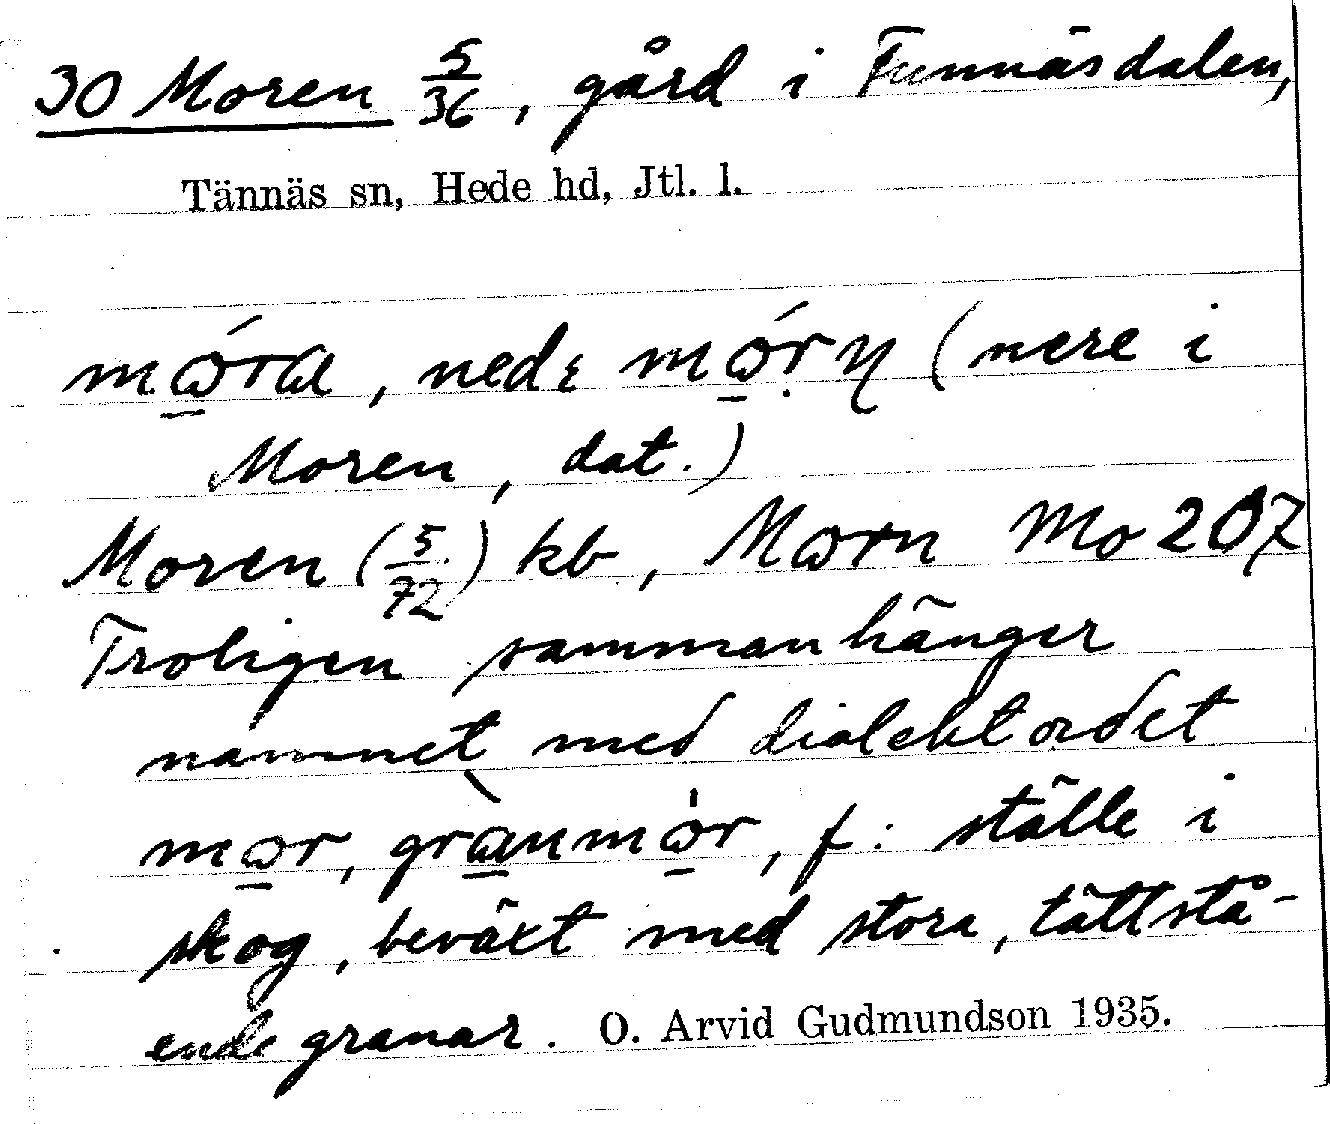 30 Moren 5/36, gård i Funnäsdalen,
Tännäs sn, Hede hd, Jtl. l.
mɷ̱́ra, nedɛ mɷ̱́ṛn̥ (nere i
Moren, dat.)
Moren (5/72) kb, Mɷrn Mo 207
Troligen sammanhänger
namnet med dialektordet
mɷ̱r, grà̱nmɷ̱̀r, f. : ställe i
skog, beväxt med stora, tättstå-
ende granar. O. Arvid Gudmundson 1935.